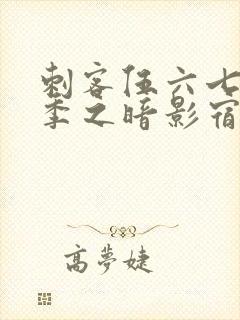 刺客伍六七
季之暗影宿
高梦婕